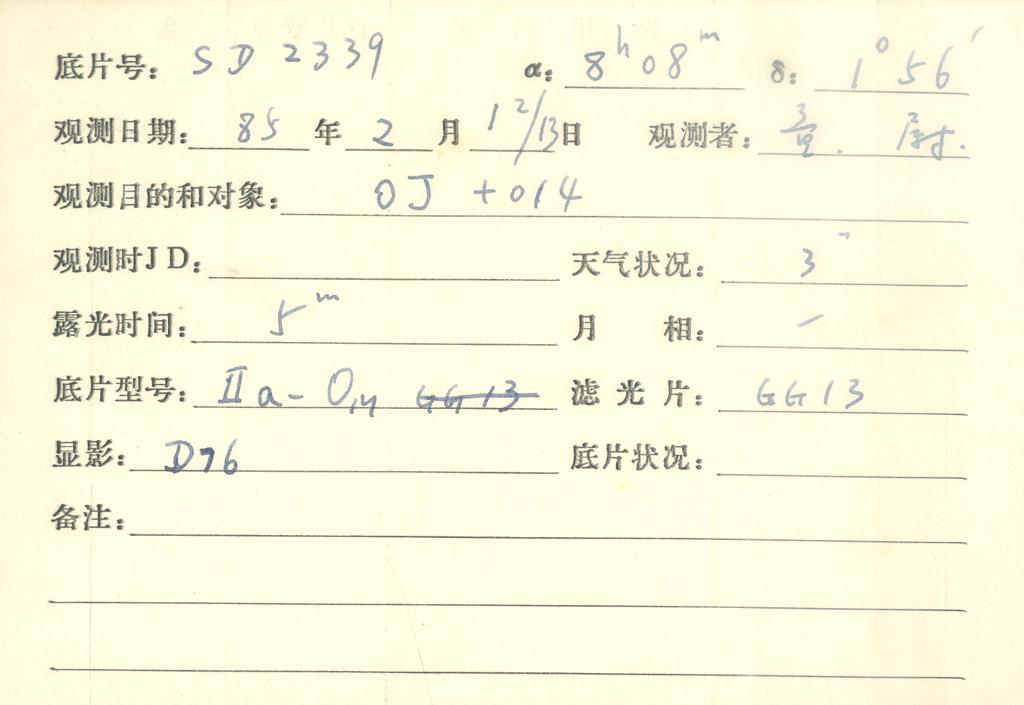 底片号: SD 2339 α: 8ʰ08ᵐ δ: 1°56′
观测日期: 85 年 2 月 12/13日 观测者:
观测目的和对象: OJ +014
观测时JD: 天气状况: 3⁻
露光时间: 5ᵐ 月 相: —
底片型号: IIa-O, GG13 滤光片: GG13
显影: D76 底片状况:
备注: